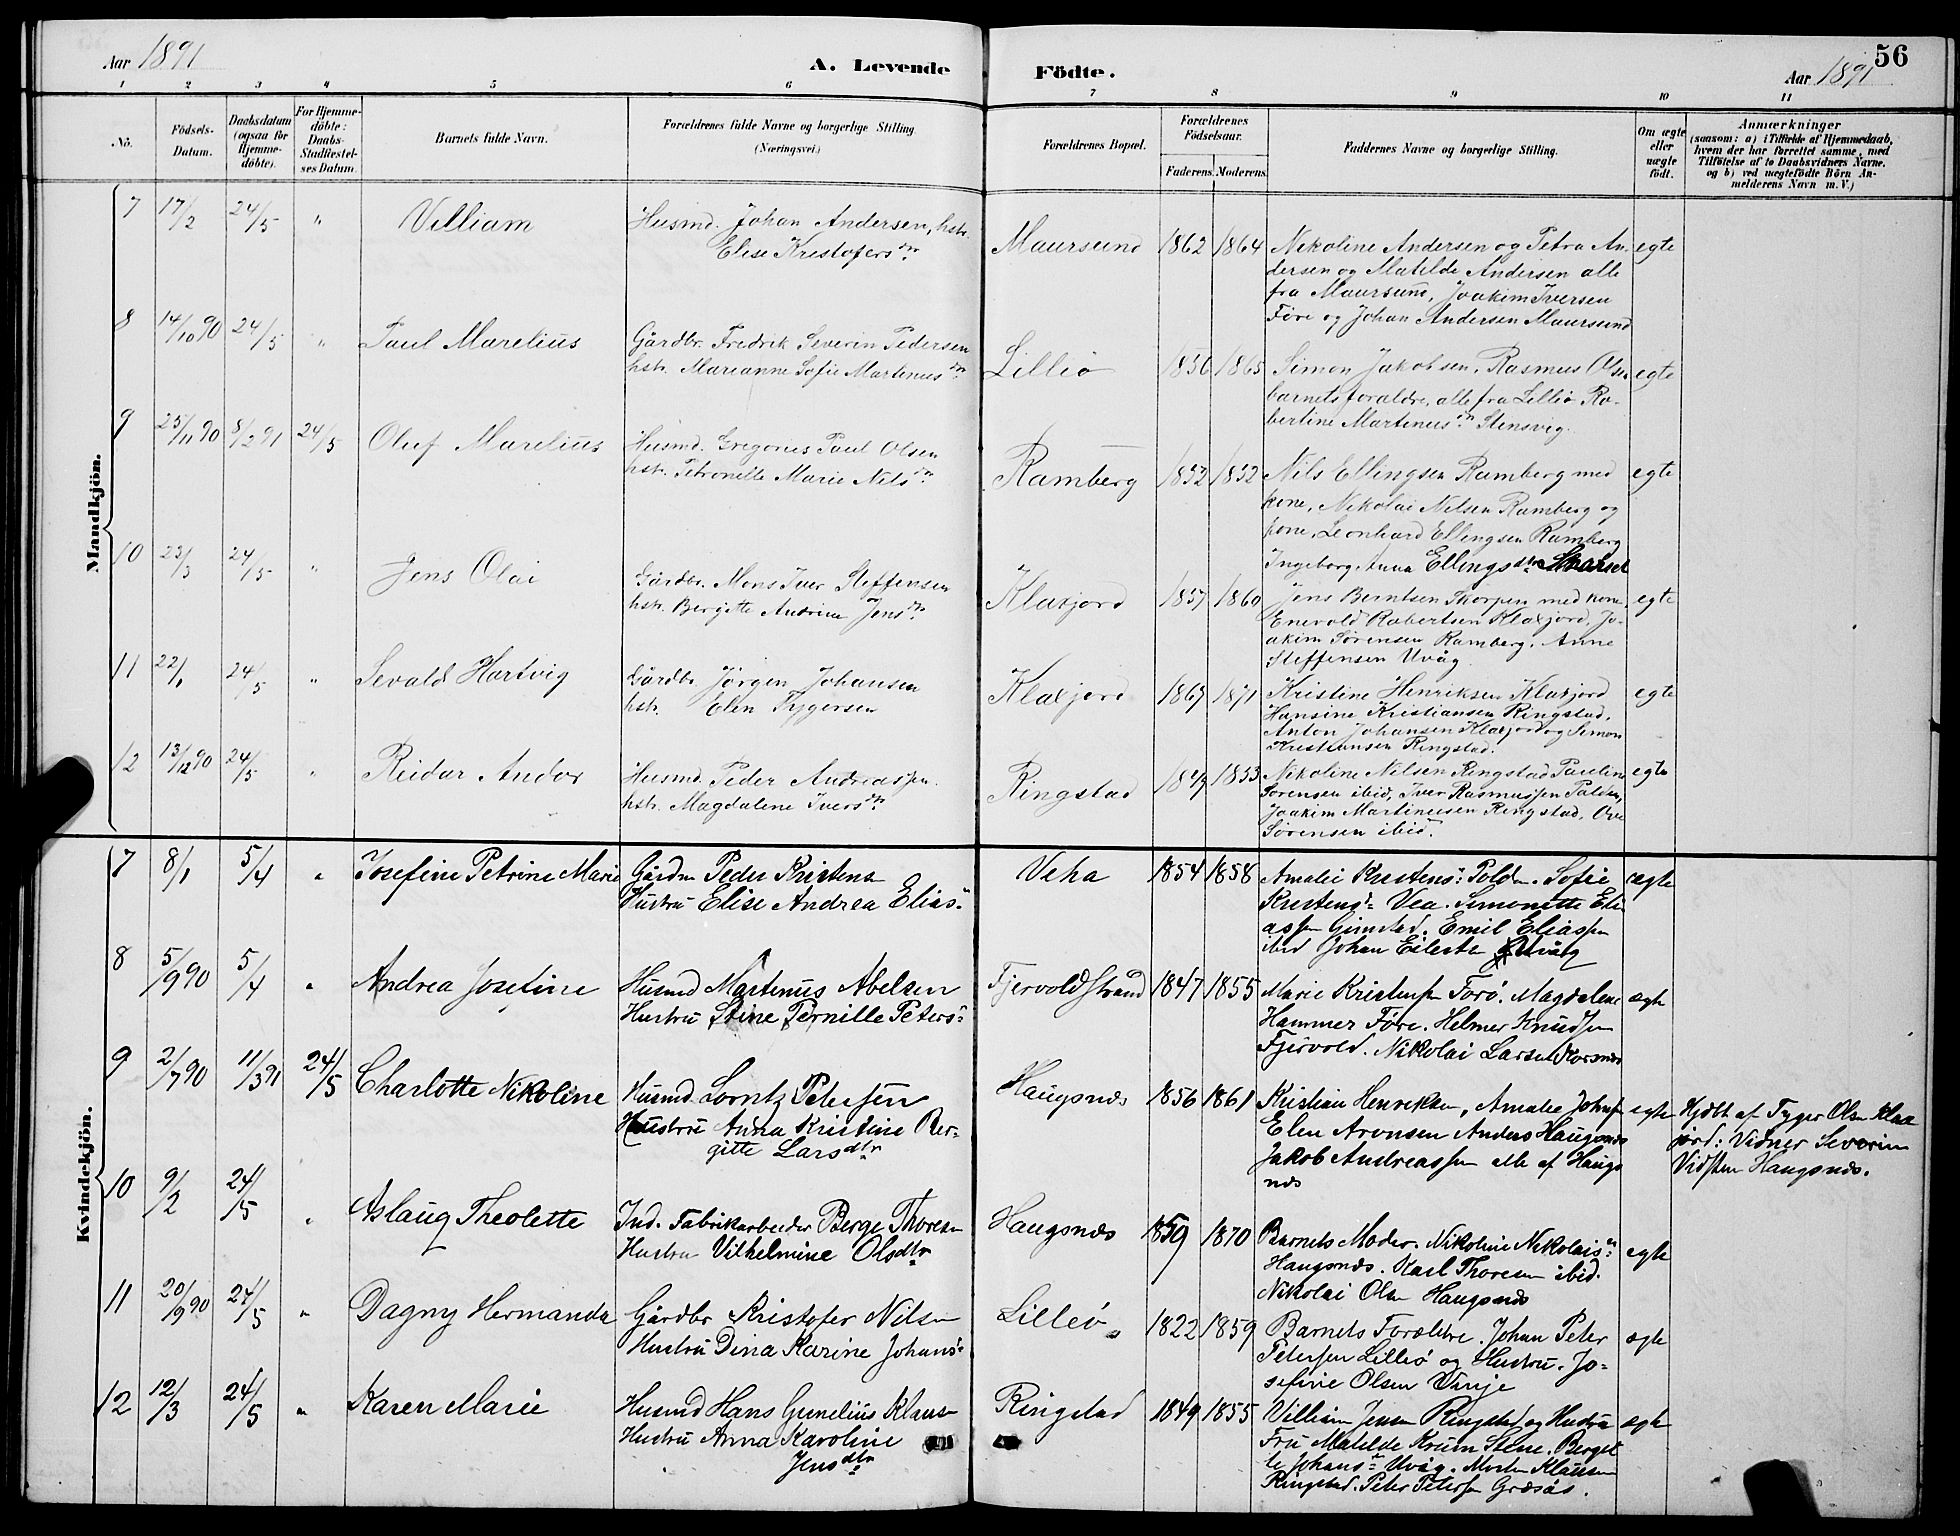 Aar 1891
A. Levende
Födte.
56
Aar 1891
1 2 3 4 5 6 7 8 9 10 11
No.
Födsels-
Datum.
Daabsdatum
(ogsaa for
Hjemme-
döbte).
For Hjemme-
döbte:
Daabs-
Stadfæstel-
ses Datum.
Barnets fulde Navn.
Forældrenes fulde Navne og borgerlige Stilling.
(Næringsvei.)
Forældrenes Bopæl.
Forældrenes
Födselsaar.
Faderens. Moderens.
Faddernes Navne og borgerlige Stilling.
Om ægte
eller
uægte
födt.
Anmærkninger
(saasom: a) i Tilfælde af Hjemmedaab,
hvem der har forrettet samme, med
Tilföielse af to Daabsvidners Navne.
og b) ved uægtefödte Börn An-
melderens Navn m. V.)
Mandkjön.
7 17/2 24/5 " Villiam
Husmd. Johan Andersen, hstr.
Elise Kristofersdtr
Maursund 1862 1864
Nikoline Andersen og Petra An-
dersen og Matilde Andersen alle
fra Maursund, Joakim Iversen
Føre og Johan Andersen Maursund
egte
8 14/10 90 24/5 " Paul Marelius
Gårdbr. Fredrik Severin Pedersen
hstr. Marianne Sofie Martinusdtr
Lilliö 1856 1865
Simon Jakobsen, Rasmus Olsen
barnets forældre, alle fra Lilliö Ro-
bertine Martinusdtr Stensvig.
egte
9 25/11 90 8/2 91 24/5 Oluf Marelius
Husmd. Gregorius Paul Olsen
hstr. Petronille Marie Nilsdtr
Ramberg 1852 1852
Nils Ellingsen Ramberg med
kone, Nikolai Nilsen Ramberg og
kone, Leonhard Ellingsen Ramberg
Ingeborg Anna Ellingsdtr
egte
10 23/3 24/5 " Jens Olai
Gårdbr. Mons Iver Steffensen
hstr. Bergitte Andrina Jensdtr
Klaxjord 1857 1860
Jens Berntsen med kone,
Enevold Robertsen Klaxjord, Jo-
akim Sørensen Ramberg, Anne
Steffensen Uvåg
egte
11 22/1 24/5 " Sevald Hartvig
Gårdbr. Jörgen Johansen
hstr. Elen Tygersen
Klaxjord 1871
Kristine Henriksen Klaxjord
Hansine Kristiansen Ringstad,
Anton Johansen Klaxjord og Simon
Kristiansen Ringstad.
egte
12 13/12 90 24/5 " Reidar Andor
Husmd. Peder Andreassen
hstr. Magdalene Iversdtr
Ringstad 1853
Nikoline Nilsen Ringstad Pauline
Sörensen ibid, Iver Rasmussen
Joakim Martinusen Ringstad, Ove
Sörensen ibid.
egte
Kvindekjön.
7 8/1 5/4 " Josefine Petrine Marie
Gårdm Peder Kristensen
Hustru Elise Andrea Elias
Veha 1854 1858
Amalie Kristens Polden. Sofie
Kristens Vea. Simonette Eli
assen Emil Eliassen
ibid Johan Uvåg
ægte
8 5/9 90 5/4 " Andrea Josefine
Husmd Martenus Abelsen
Hustru Stine Pernille Peters
Fjervoldstrand 1847 1855
Marie Kristensen Forö. Magdalene
Hammer Føre. Helmer Knudsen
Fjervold. Nikolai Larsen
ægte
9 2/7 90 11/3 91 24/5 Charlotte Nikoline
Husmd. Lorntz Petersen
Hustru Anna Kristine Ber-
gitte Larsdtr
Haugsnæs 1856 1861
Kristian Henriksen, Amalie Johnsen
Elen Aronsen Anders Haugsnæs
Jakob Andreassen alle af Haugs
næs
egte
Hjdbt af Tyger Olsen Klax
jord: Vidner Severin
Vidsten Haugsnæs.
10 9/2 24/5 " Aslaug Theolette
Ind. Fabrikarbeider Berge Thoresen
Hustru Vilhelmine Olsdtr
Haugsnæs 1859 1870
Barnets Moder. Nikoline Nikolais
Haugsnæs. Karl Thoresen ibid.
Nikolai Olsen Haugsnæs
egte
11 20/9 90 24/5 " Dagny Hermanda
Gårdbr Kristofer Nilsen
Hustru Dina Karine Johans
Lilleö 1822 1859
Barnets Forældre. Johan Peter
Petersen Lilleö og Hustru. Jo-
sefine Olsen
ægte
12 12/3 24/5 " Karen Marie
Husmd Hans Gunelius Klausen
Hustru Anna Karoline
Jensdtr
Ringstad 1849 1855
Villiam Jensen Ringstad og Hustru
Fru Matilde Krum Stene. Berget
te Johans Uvåg. Morten Klausen
Ringstad. Peter Petersen Græsås.
ægte